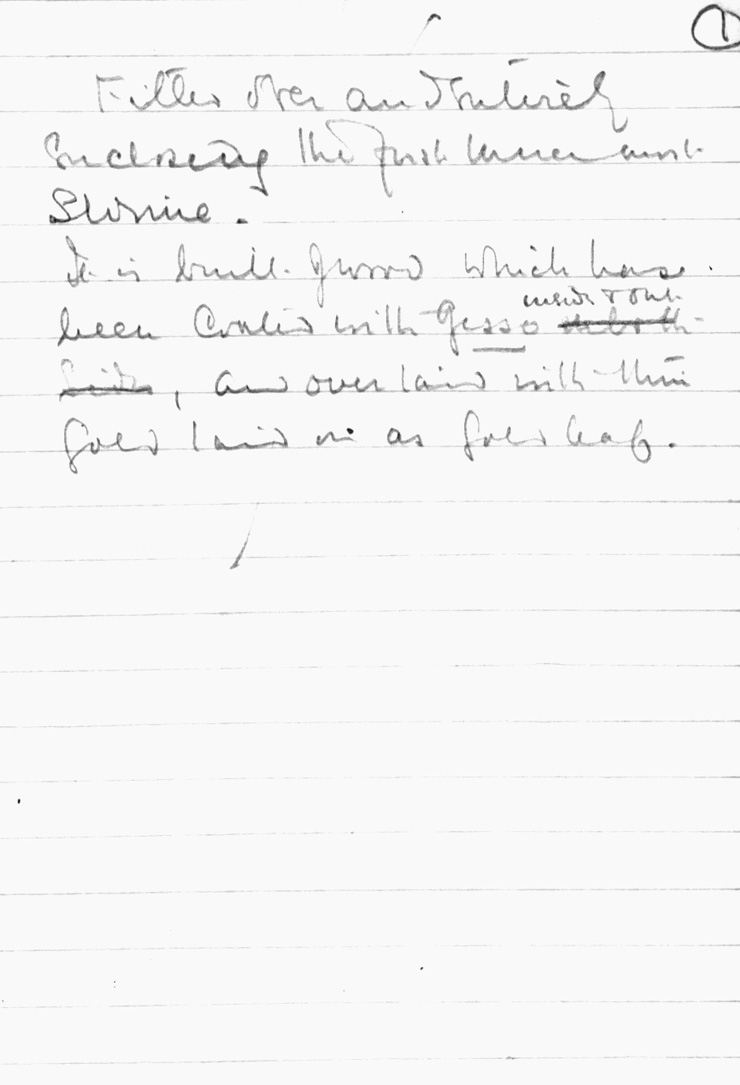 1
Fitted over and entirely
Enclosing the first inner most
Shrine.
It is built of wood which has
been coated with Gesso inside & out
on both
sides, and overlaid with thin
gold laid on as gold leaf.